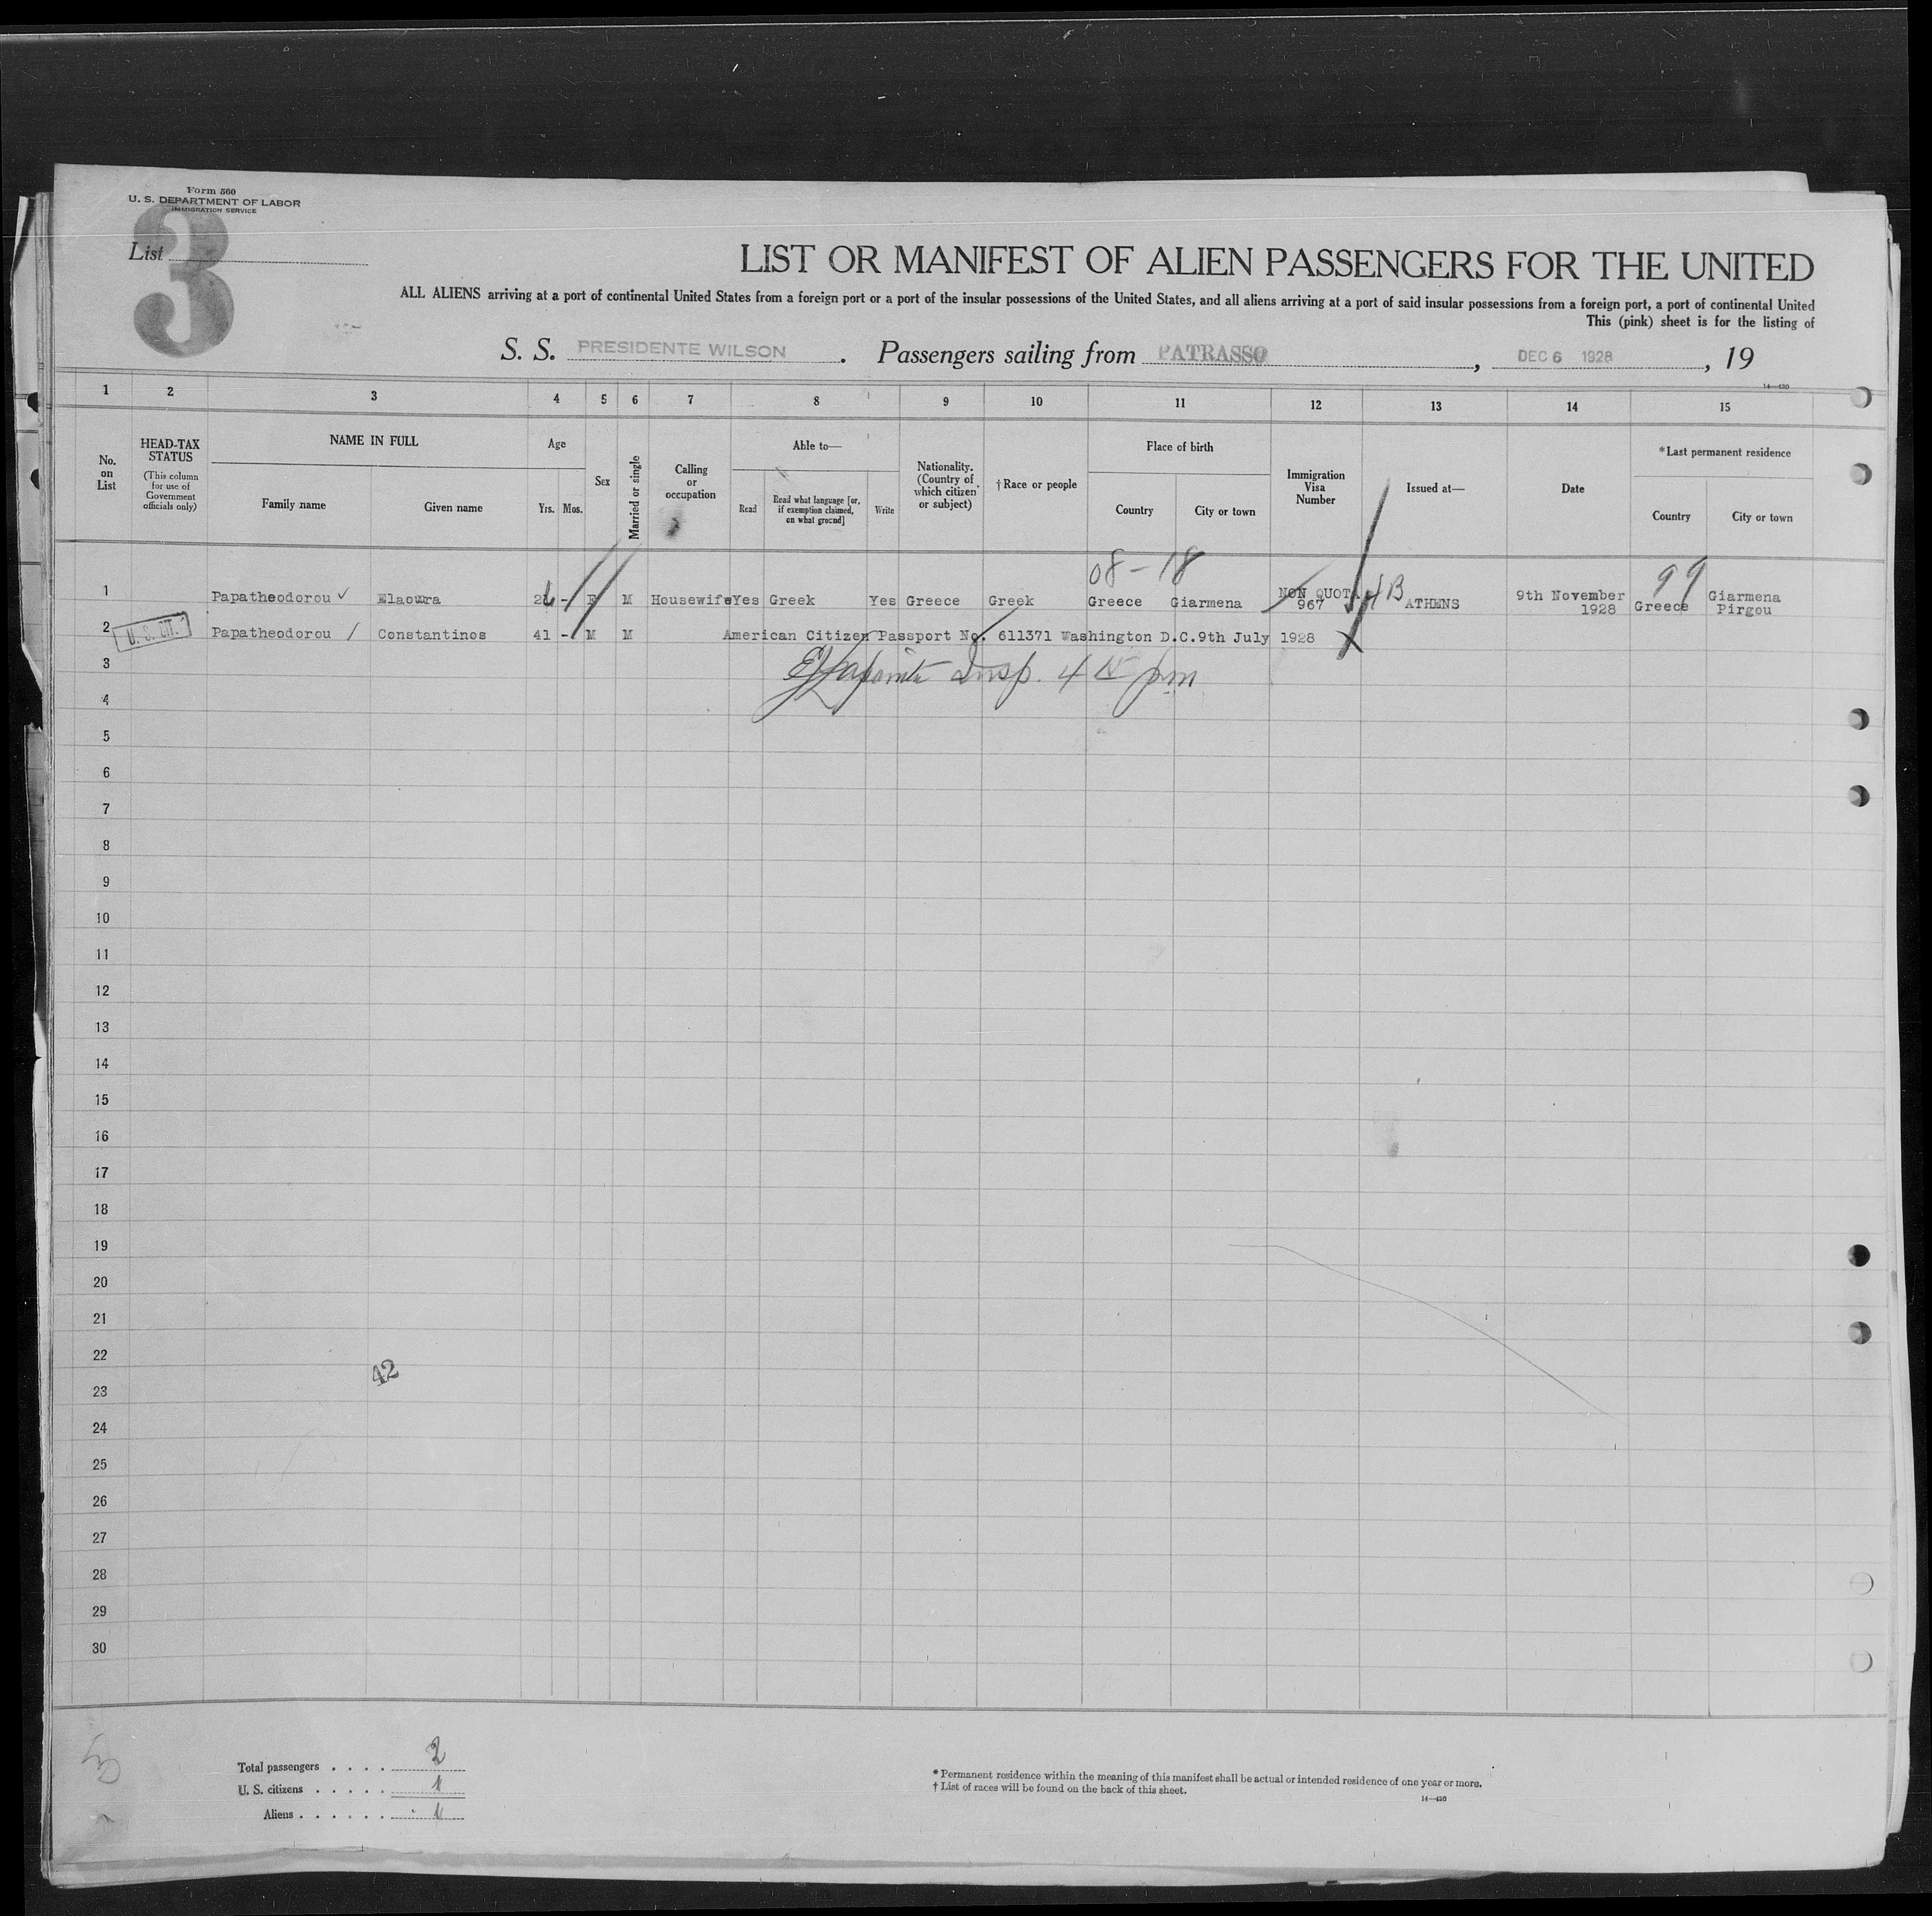 Form 500
U. S. DEPARTMENT OF LABOR
IMMIGRATION SERVICE
List 3
LIST OR MANIFEST OF ALIEN PASSENGERS FOR THE UNITED
ALL ALIENS arriving at a port of continental United States from a foreign port or a port of the insular possessions of the United States, and all aliens arriving at a port of said insular possessions from a foreign port, a port of continental United
This (pink) sheet is for the listing of
S. S. PRESIDENTE WILSON . Passengers sailing from PATRASSO , DEC 6 1928 , 19
14—430
1 2 3 4 5 6 7 8 9 10 11 12 13 14 15
No. on List
HEAD-TAX STATUS
(This column for use of Government officials only)
NAME IN FULL
Family name
Given name
Age
Yrs. Mos.
Sex
Married or single
Calling or occupation
Able to—
Read
Read what language [or, if exemption claimed, on what ground]
Write
Nationality. (Country of which citizen or subject)
†Race or people
Place of birth
Country
City or town
Immigration Visa Number
Issued at—
Date
*Last permanent residence
Country
City or town
08-18
99
1 Papatheodorou ✓ - F M Housewife Yes Greek Yes Greece Greek Greece Giarmena NON QUOTA 967 4B ATHENS 9th November 1928 Greece Giarmena Pirgou
2 U. S. CIT. Papatheodorou / Constantinos 41 - M M American Citizen Passport No. 611371 Washington D.C. 9th July 1928
Insp. 4 15 pm
3
4
5
6
7
8
9
10
11
12
13
14
15
16
17
18
19
20
21
22
42
23
24
25
26
27
28
29
30
Total passengers . . . . 2
U. S. citizens . . . . . 1
Aliens . . . . . . 1
* Permanent residence within the meaning of this manifest shall be actual or intended residence of one year or more.
† List of races will be found on the back of this sheet.
14—430